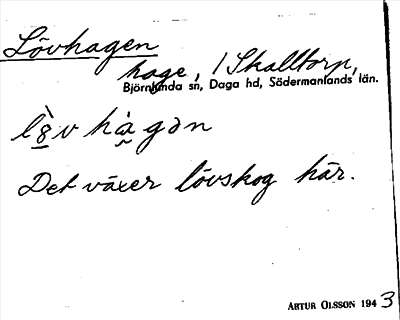 Lövhagen
hage, / Skalltorp,
Björnlunda sn, Daga hd, Södermanlands län.
l v h g ə n
Det växer lövskog här.
ARTUR OLSSON 1943